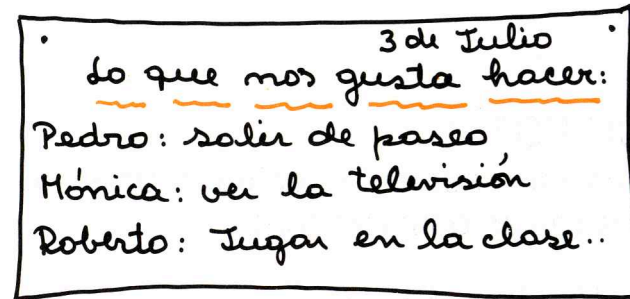 3 de Julio
Lo que nos gusta hacer:
Pedro: salir de paseo
Mónica: ver la televisión
Roberto: Jugar en la clase..